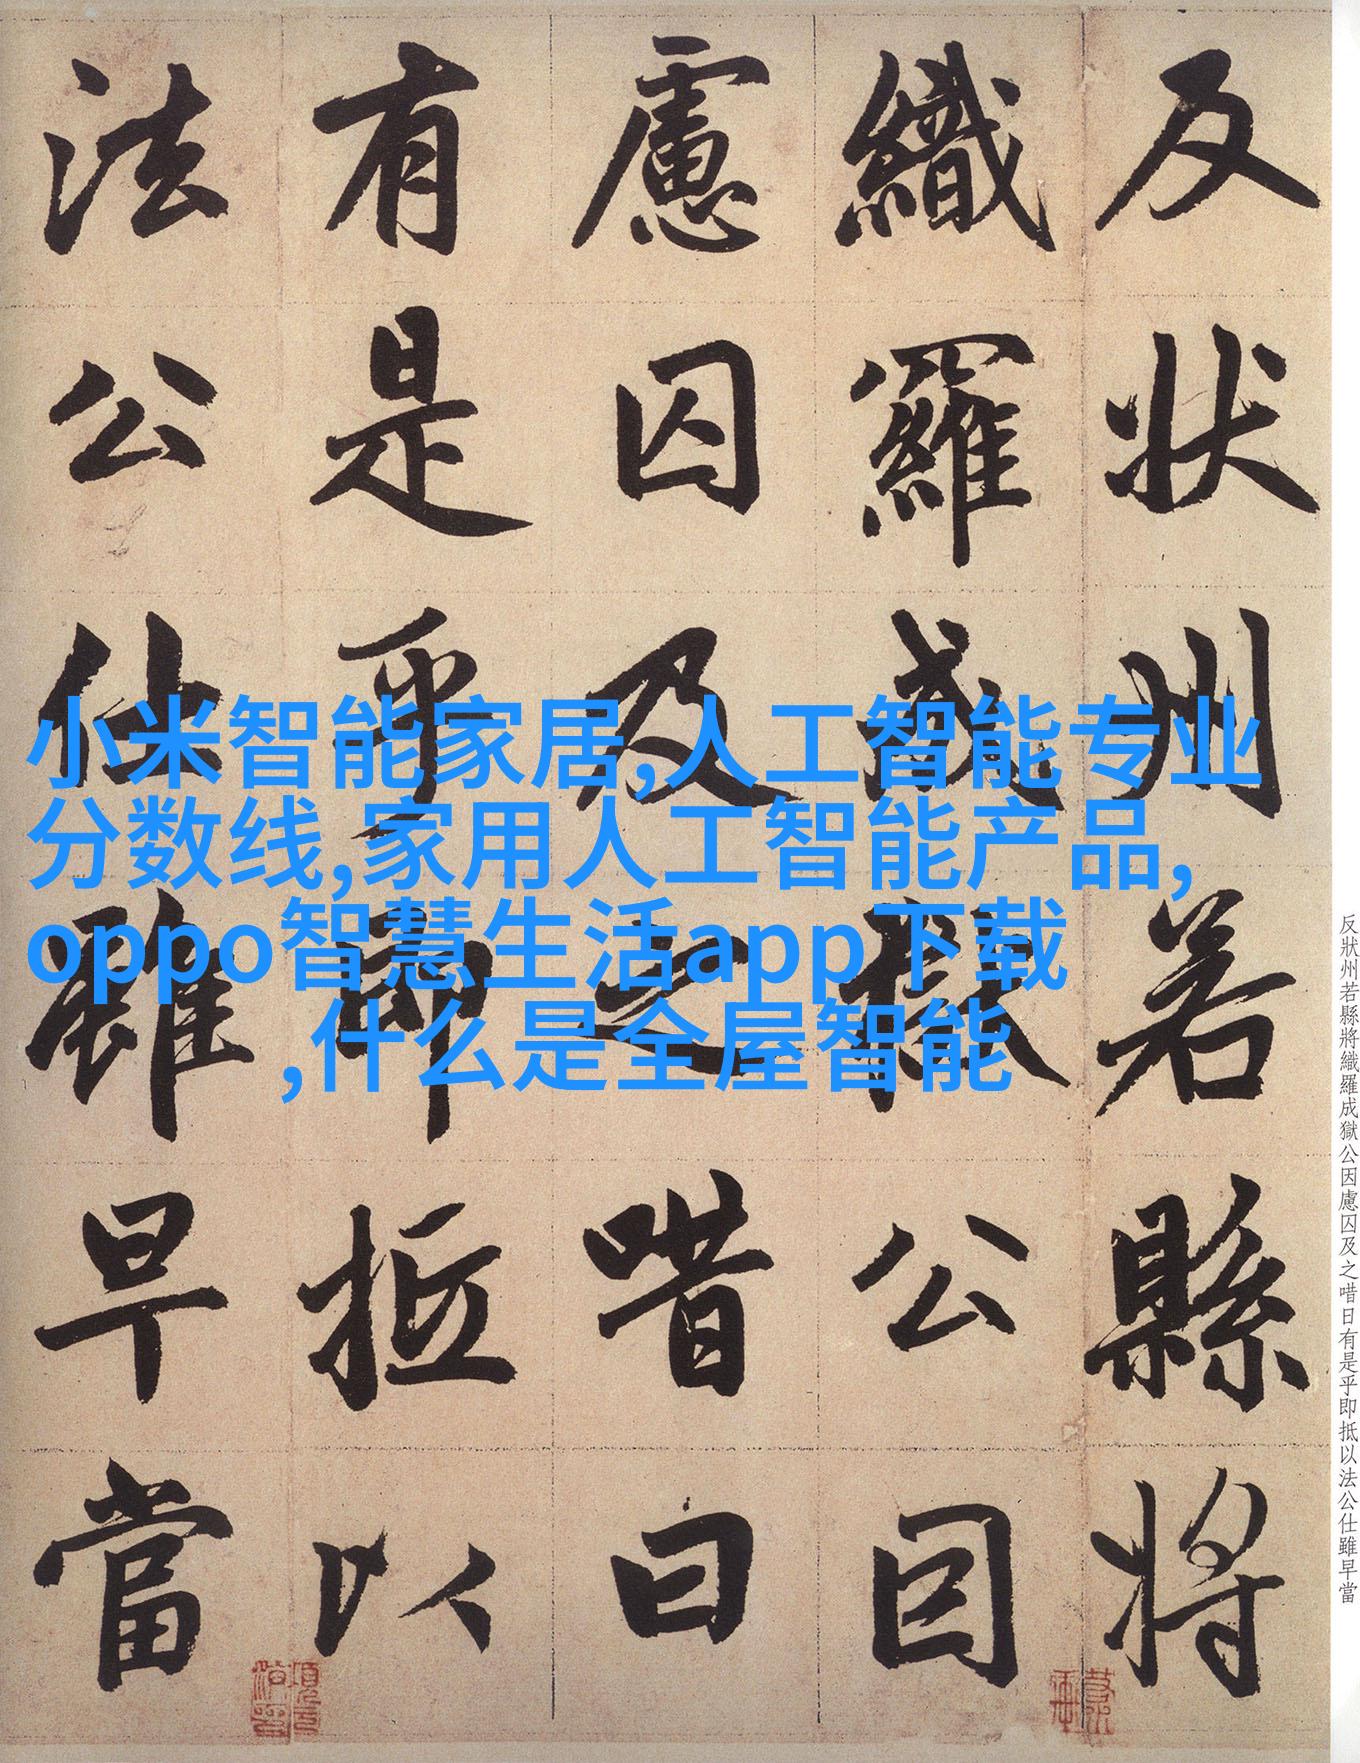 反状州若縣將
織羅成獄公因
慮囚及之唶曰
有是乎即抵以
法公仕雖早當
小米智能家居,人工智能专业
分数线,家用人工智能产品,
oppo智慧生活app下载
,什么是全屋智能
反狀州若縣將織羅成獄公因慮囚及之唶日有是乎即抵以法公仕雖早當